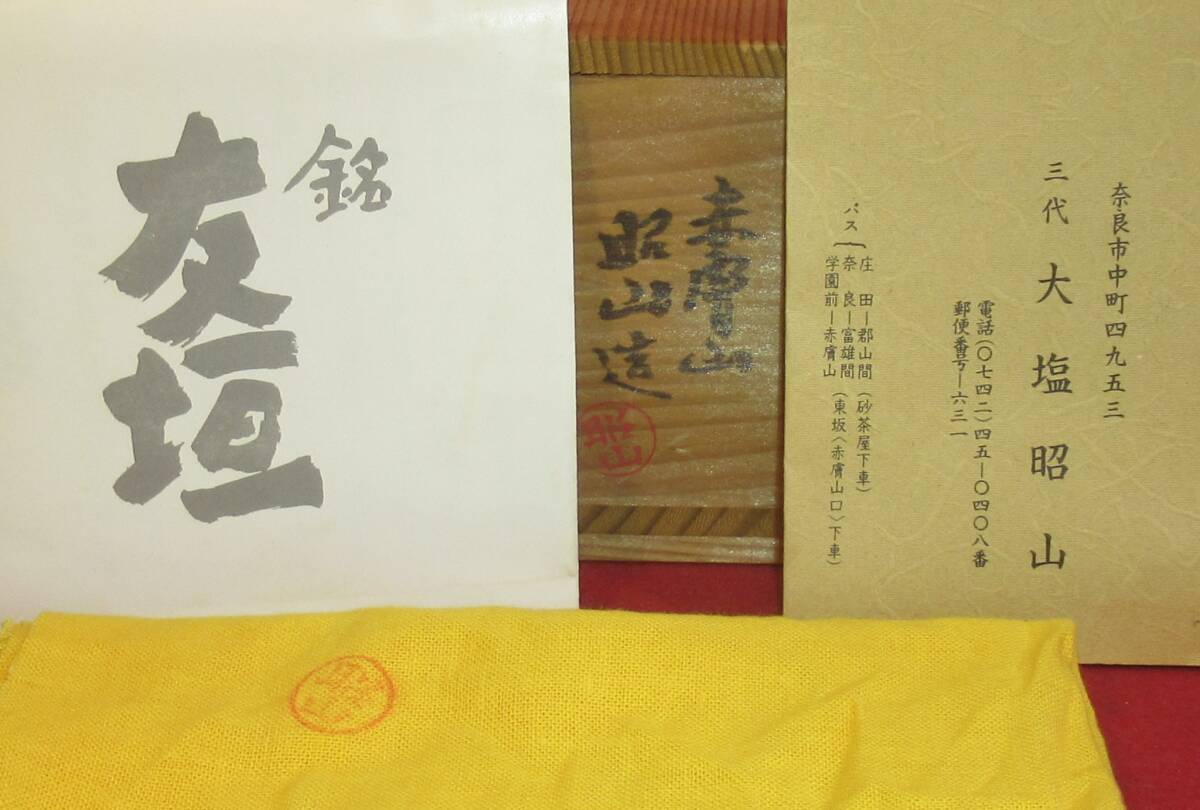 奈良市中町四九五三
三代 大塩昭山
電話(〇七四二)四五ー〇四〇八番
郵便番号ー六三一
バス
庄田ー郡山間(砂茶屋下車)
奈良ー富雄間
学園前ー赤膚山(東坂〈赤膚山口〉下車)
赤膚山
昭山造
昭山
銘
友垣